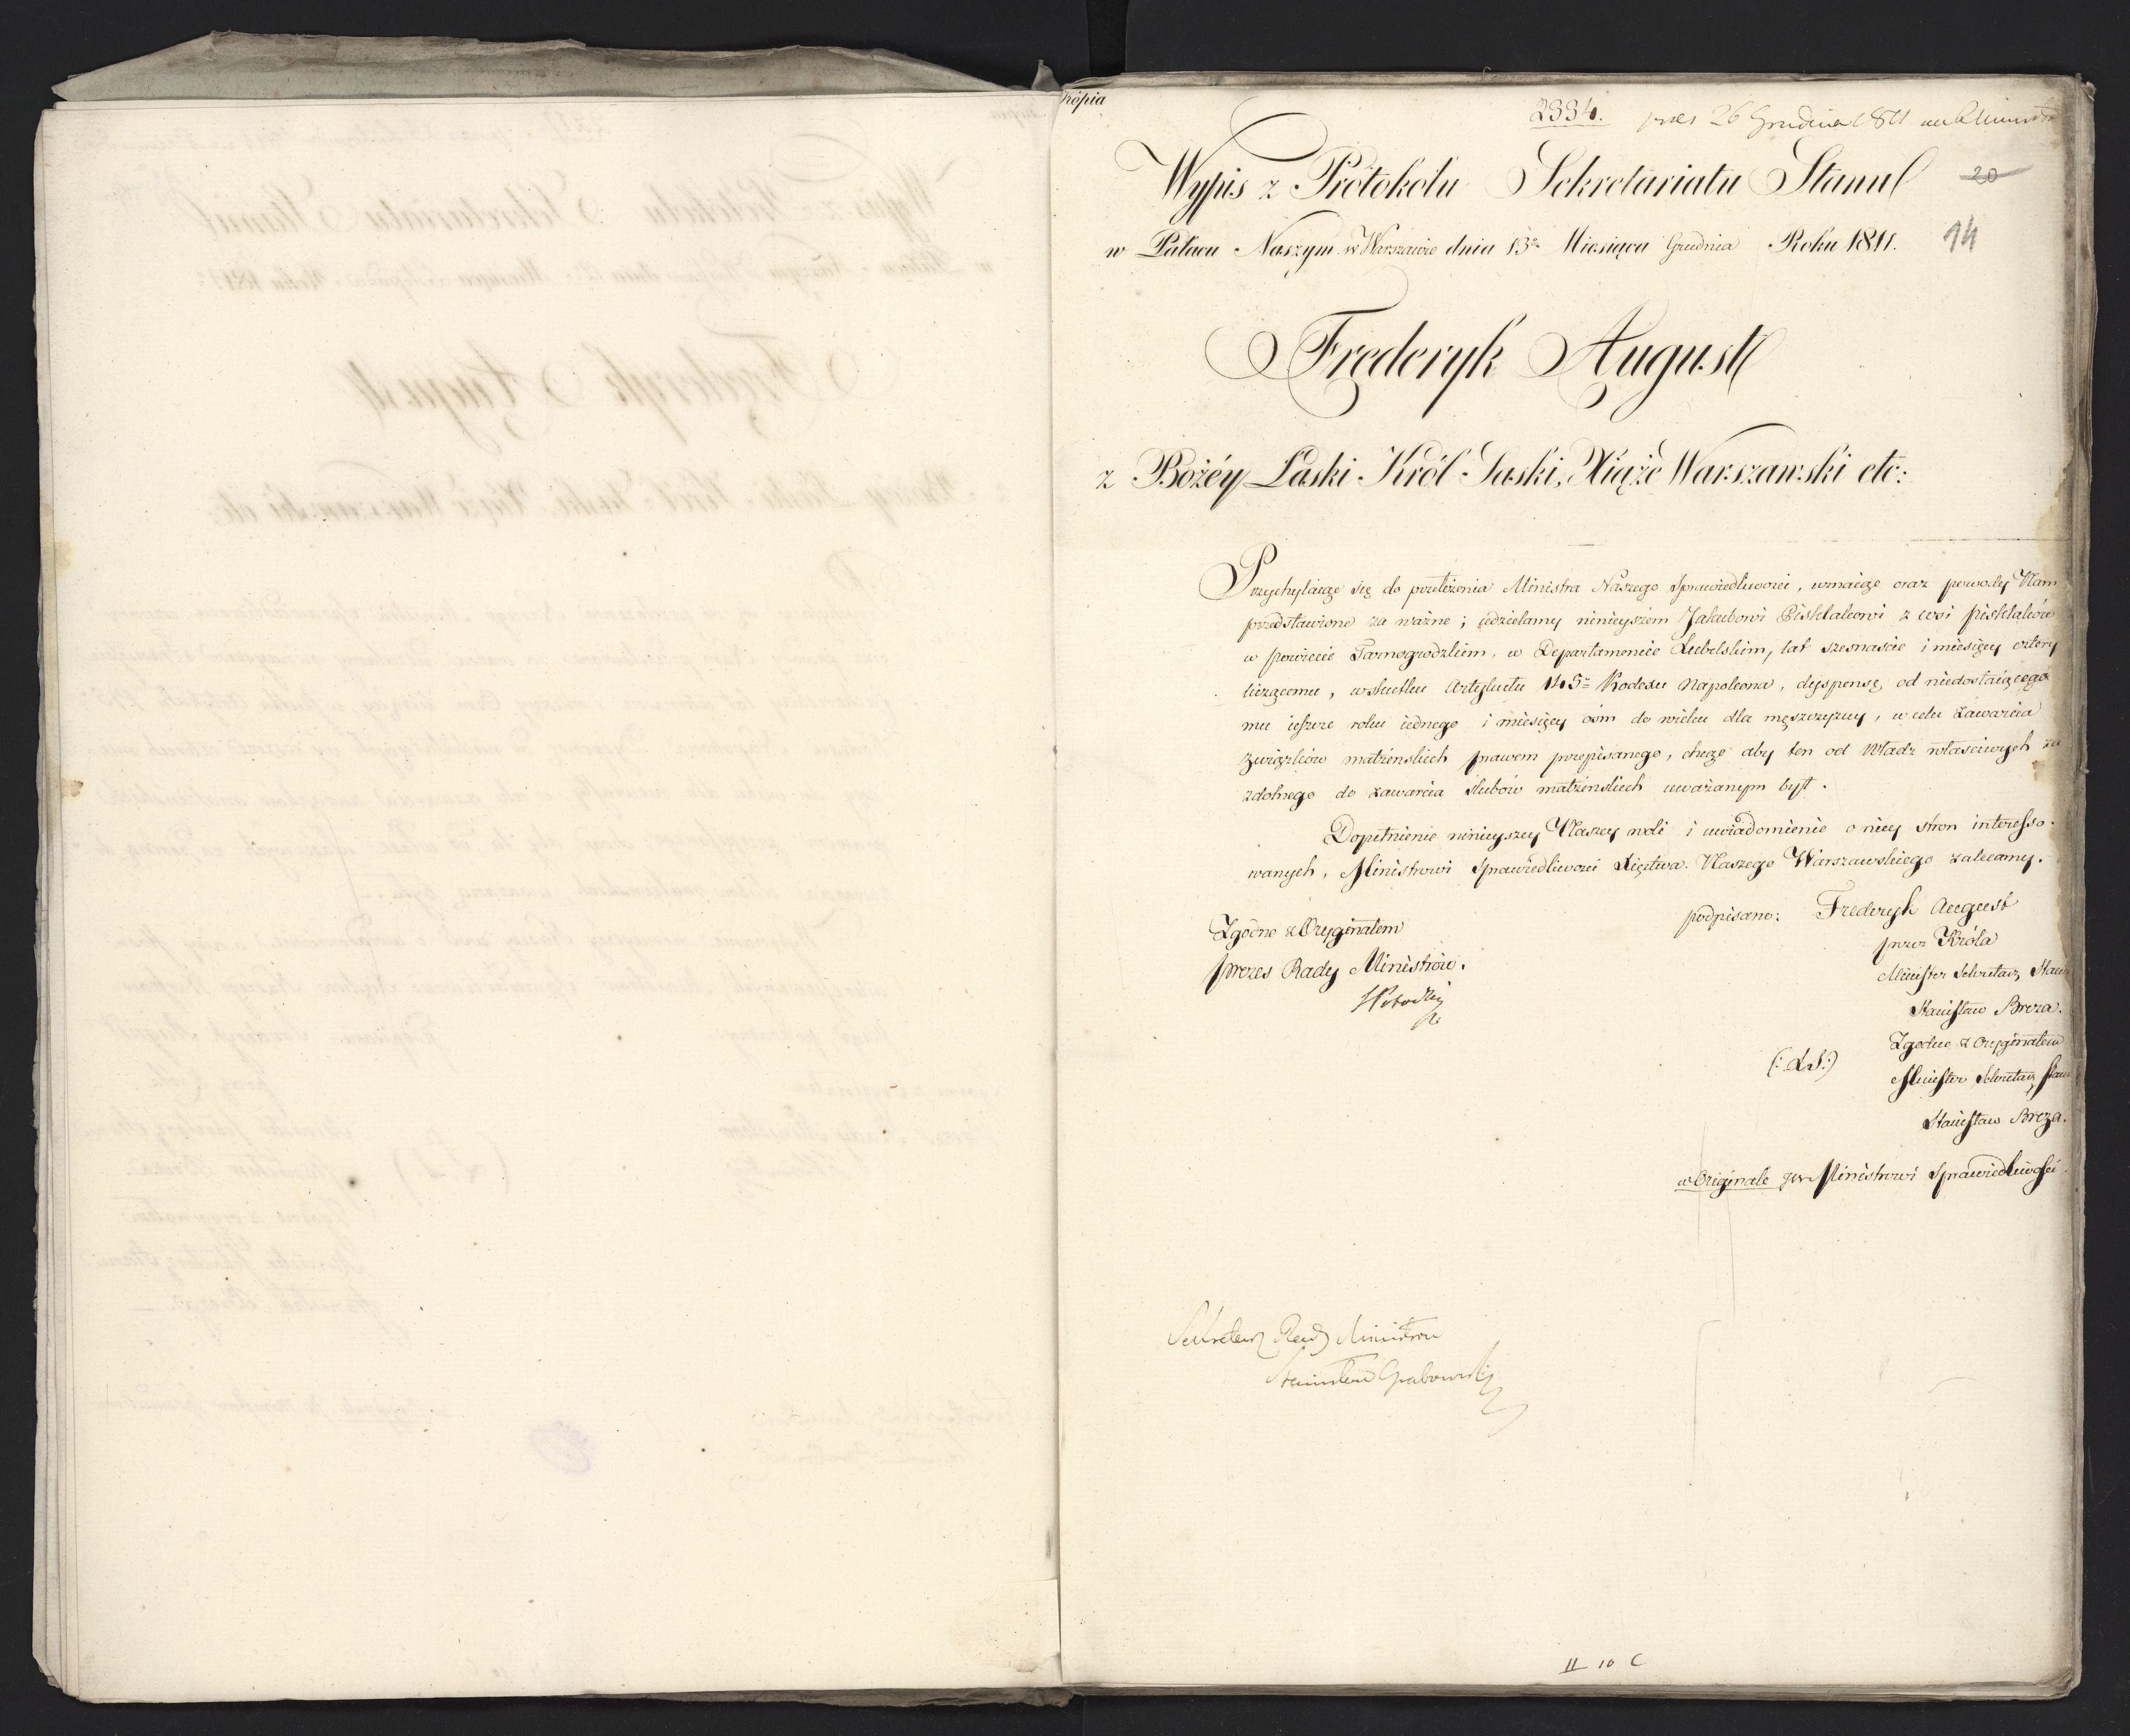 Kopia
2334. pres 26 Grudnia 1811
Wypis z Protokołu Sekretariatu Stanu
20
w Pałacu Naszym w Warszawie dnia 13º Miesiąca Grudnia Roku 1811.
14
Frederyk August
z Bożéy Łaski Król Saski, Xiąże Warszawski etc:
Przychylaiąc się do przełożenia Ministra Naszego Sprawiedliwości, uznaiąc oraz powody Nam
przedstawione za ważne; udzielamy ninieyszém Jakubowi Pisklakowi z wsi Pisklaków
w powiecie Tarnogrodzkim, w Departamencie Lubelskim, lat szesnaście i miesięcy cztery
liczącemu, wskutku Artykułu 145º Kodexu Napoleona, dyspensę od niedostaiącego
mu ieszcze roku iednego i miesięcy óśm do wieku dla męszczyzny, w celu zawarcia
związków małżeńskich prawem przepisanego, chcąc aby ten od Władz właściwych za
zdolnego do zawarcia ślubów małżeńskich uważanym był.
Dopełnienie ninieyszey Naszey woli i uwiadomienie o niey stron interesso-
wanych, Ministrowi Sprawiedliwości Xięstwa Naszego Warszawskiego zalecamy.
Zgodno z Oryginałem
Prezes Rady Ministrów.
podpisano: Frederyk August
przez Króla
Minister Sekretarz Stanu
Stanisław Breza.
Zgodno z Oryginałem
(: L.S:)
Minister Sekretarz Stanu
Stanisław Breza.
w Originale JW Ministrowi Sprawiedliwości
Sekretarz Rady Ministrów
Stanisław Grabowski
II 10 C